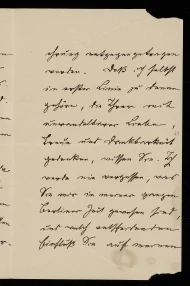 ehrung entgegengetragen
werden. Daß ich selbst
in erster Linie zu denen
gehöre, die Ihrer mit
unwandelbarer Liebe,
Treue und Dankbarkeit
gedenken, wissen Sie. Ich
werde nie vergessen, was
Sie mir in meiner ganzen
Berliner Zeit gewesen sind
und welch entscheidenden
Einfluß Sie auf meinen